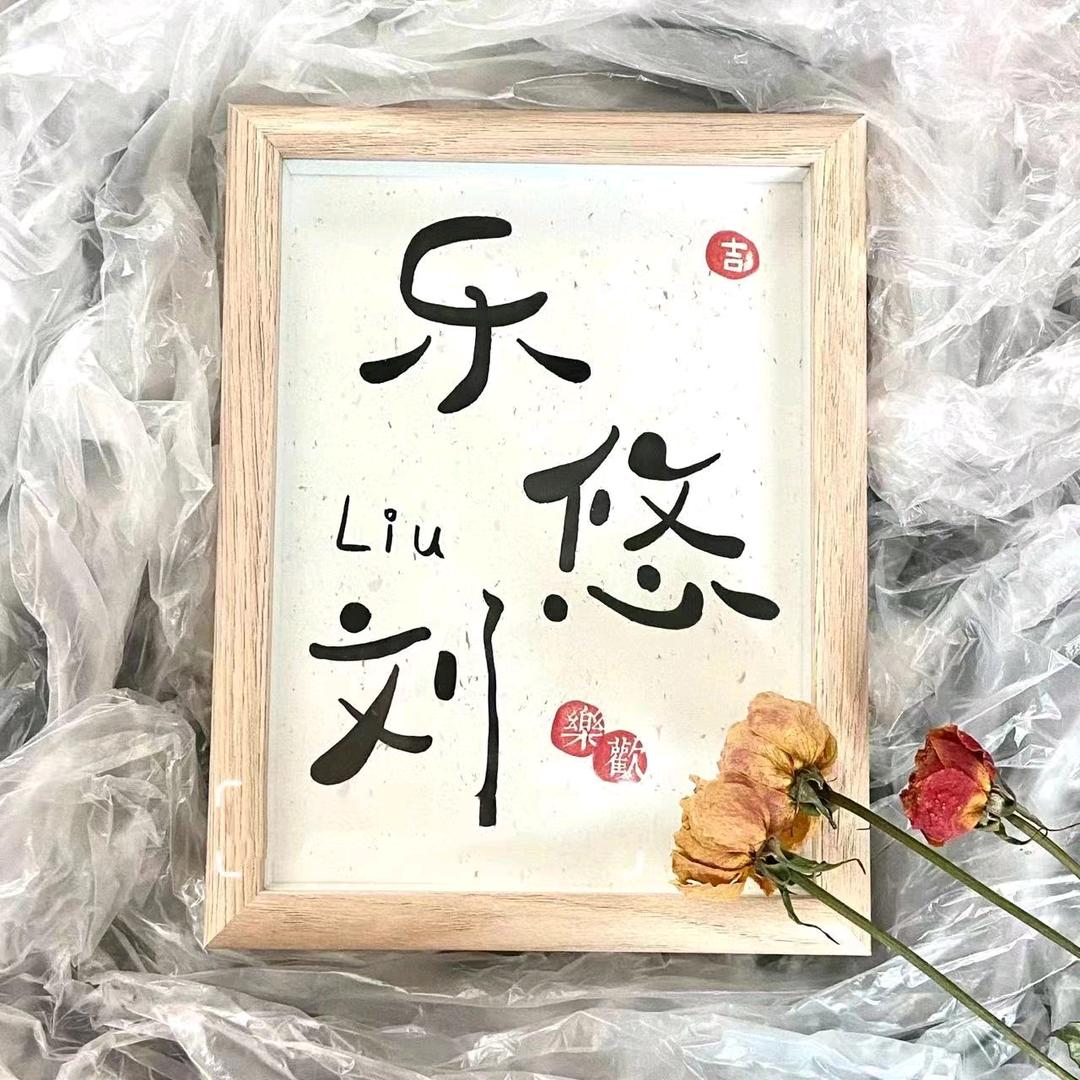 吉
乐
悠
Liu
刘
樂
歡